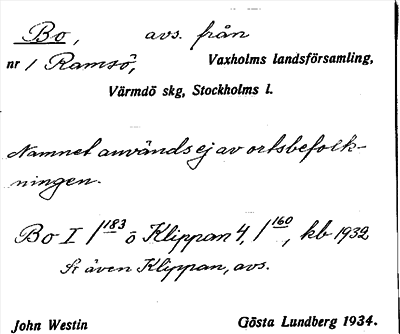 Bo, avs. från
nr 1 Ramsö, Vaxholms landsförsamling,
Värmdö skg, Stockholms l.
Namnet användsej av ortsbefolk-
ningen.
Bo I /183 ö Klippan 4, /160, kb 1932
Fr även Klippan, avs.
John Westin Gösta Lundberg 1934.